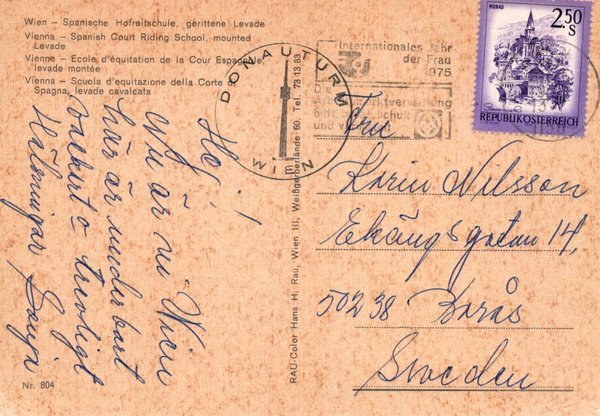 Wien – Spanische Hofreitschule, gerittene Levade
Vienna – Spanish Court Riding School, mounted
Levade
Vienne – Ecole d'équitation de la Cour Espagnole,
levade montée
Vienna – Scuola d'equitazione della Corte di
Spagna, levade cavalcata
DONAUTURM
WIEN
Internationales Jahr
der Frau
1975
Die
hilft
MURAU
2.50
S
REPUBLIK ÖSTERREICH
Hej!
Nu är vi i Wien
här är underbart
vackert o trevligt
Hälsningar Sonja
Nr. 804
RAU-Color Hans H. Rau, Wien III, Weißgerberlände 60, Tel. 73 13 83
Karin Nilsson
Ekängsgatan 14
502 38 Borås
Sweden